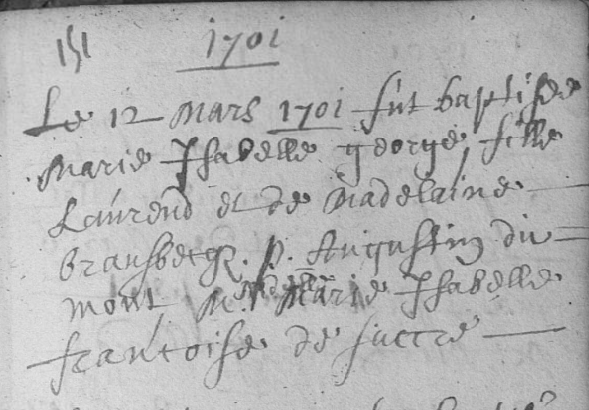 151
1701
Le 12 Mars 1701 fut baptisée
Marie Isabelle george, fille
Laurend et de Madelaine
bransbecq. p. Augustin du=
mont M. Marie Isabelle
francoise de succre